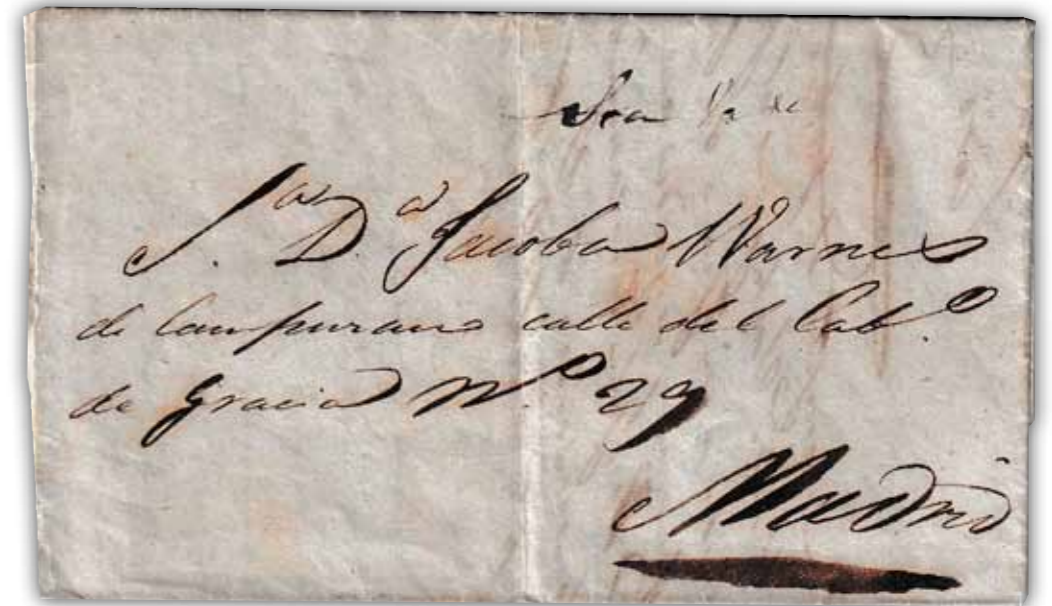 S.ra D.a Jacoba Warnes
de Campurano calle del Cab.o
de Gracia N.o 29
Madrid